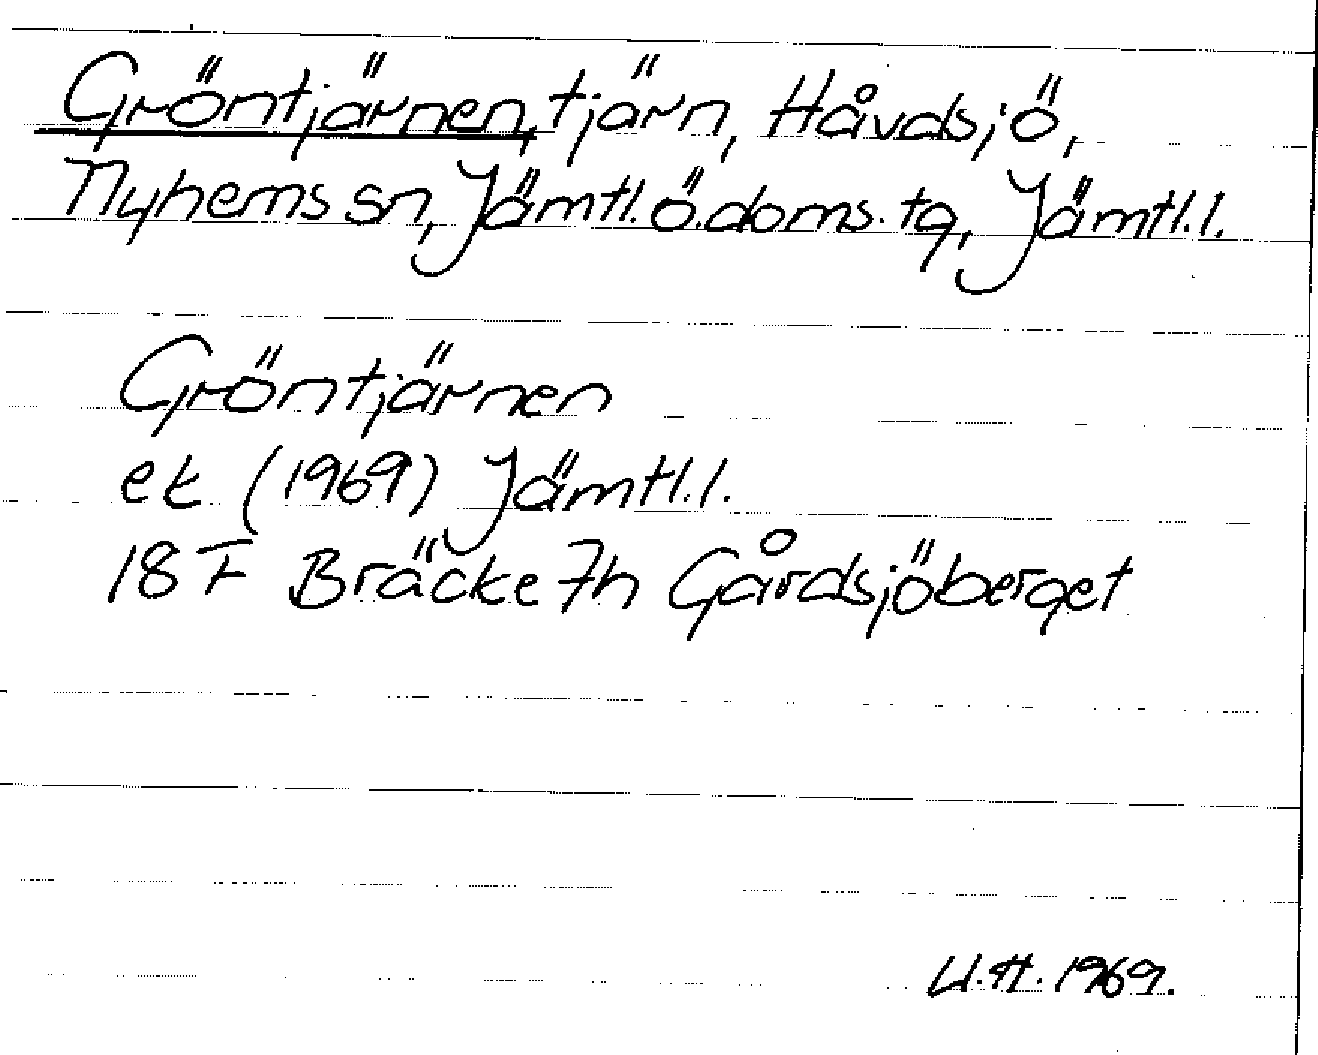 Gröntjärnen, tjärn, Håvdsjö,
Nyhems sn, Jämtl. ö. doms. tg, Jämtl. l.
Gröntjärnen
ek (1969) Jämtl. l.
18 F Bräcke 7h Gårdsjöberget
U.H. 1969.